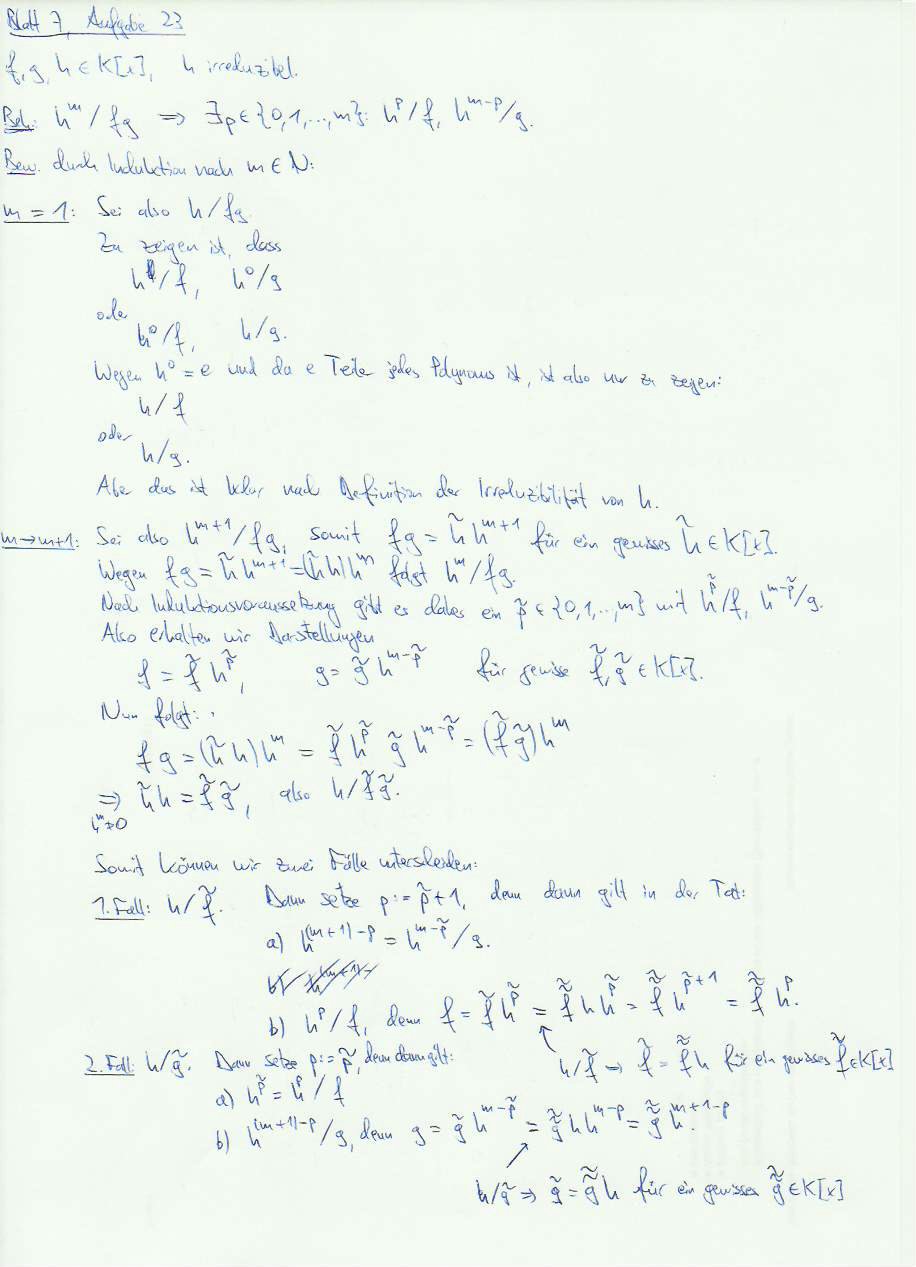 Blatt 7, Aufgabe 23
f, g, h ∈ K[x], h irreduzibel.
Beh: h^m / fg ⇒ ∃p ∈ {0,1,...,m}: h^p / f, h^{m-p} / g.
Bew. durch Induktion nach m ∈ N:
m = 1: Sei also h / fg.
Zu zeigen ist, dass
h^1 / f, h^0 / g
oder
h^0 / f, h / g.
Wegen h^0 = e und da e Teiler jedes Polynoms ist, ist also nur zu zeigen:
h / f
oder
h / g.
Aber das ist klar nach Definition der Irreduzibilität von h.
m → m+1: Sei also h^{m+1} / fg, somit fg = h̃ h^{m+1} für ein gewisses h̃ ∈ K[x].
Wegen fg = h̃ h^{m+1} = (h̃ h) h^m folgt h^m / fg.
Nach Induktionsvoraussetzung gibt es daher ein p̃ ∈ {0,1,..,m} mit h^{p̃} / f, h^{m-p̃} / g.
Also erhalten wir Darstellungen
f = f̃ h^{p̃}, g = g̃ h^{m-p̃} für gewisse f̃, g̃ ∈ K[x].
Nun folgt:
fg = (h̃ h) h^m = f̃ h^{p̃} g̃ h^{m-p̃} = (f̃ g̃) h^m
⇒ h̃ h = f̃ g̃, also h / f̃ g̃.
h^m ≠ 0
Somit können wir zwei Fälle unterscheiden:
1. Fall: h / f̃. Dann setze p := p̃ + 1, denn dann gilt in der Tat:
a) h^{(m+1)-p} = h^{m-p̃} / g.
b) h^p / f, denn f = f̃ h^{p̃} = f̃̃ h h^{p̃} = f̃̃ h^{p̃+1} = f̃̃ h^p.
h / f̃ ⇒ f̃ = f̃̃ h für ein gewisses f̃̃ ∈ K[x]
2. Fall: h / g̃. Dann setze p := p̃, denn dann gilt:
a) h^{p̃} = h^p / f
b) h^{(m+1)-p} / g, denn g = g̃ h^{m-p̃} = g̃̃ h h^{m-p} = g̃̃ h^{m+1-p}.
h / g̃ ⇒ g̃ = g̃̃ h für ein gewisses g̃̃ ∈ K[x]